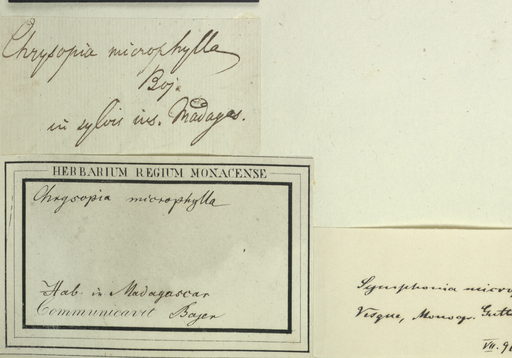 Chrysopia microphylla
Boj.
in sylvis ins. Madagas.
HERBARIUM REGIUM MONACENSE
Chrysopia microphylla
Hab. in Madagascar
Communicavit Bojer
Symphonia micro
Vesque, Monogr. Gutt
VII. 9